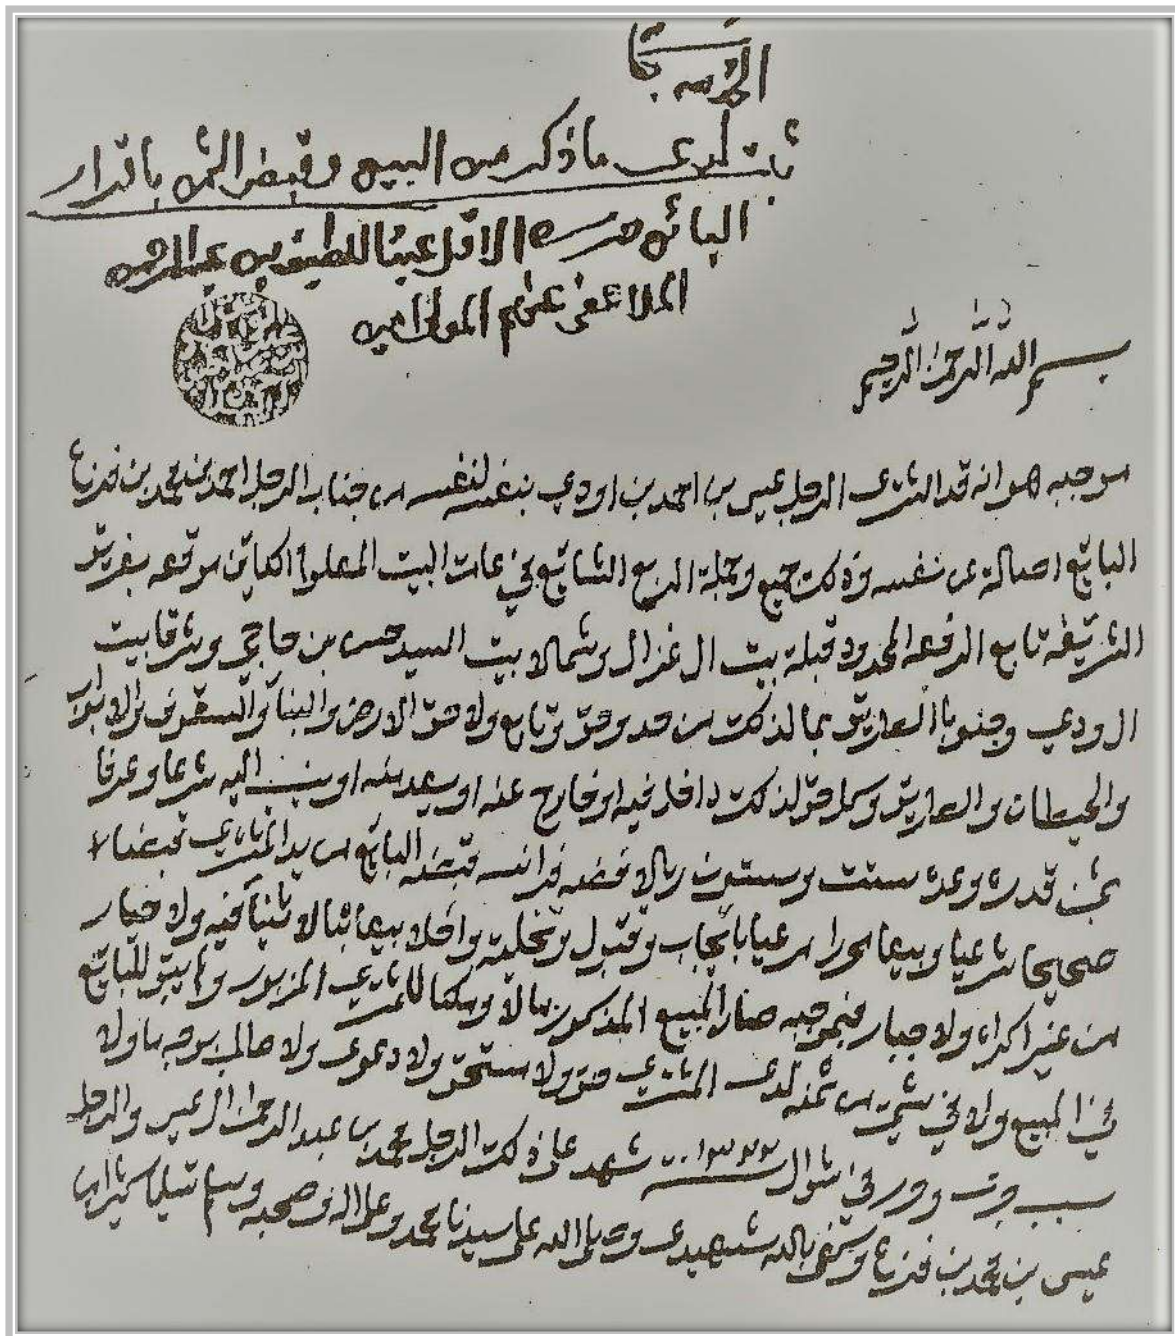 الحمد لله تعالى
ثبت لدي ما ذكر من البيع وقبض الثمن باقرار
البائع حرره الاقل عبد اللطيف بن عبد الرحمن
الملا عفى عنهم المولى امين
بسم الله الرحمن الرحيم
موجبه هو انه قد اشترى الرجل عيسى بن احمد بن اودي بنفسه لنفسه من جناب الرجل احمد بن محمد بن قرناع
البائع اصالة عن نفسه وذلك جميع وجملة الربع الشائع في عامت البيت المعلوم الكاين موقعه بفريق
الشريفه تابع الرفعه المحدود قبلة بيت ال غزال وشمالا بيت السيد حسن بن حاجي وشرقا بيت
ال ودي وجنوبا الطريق بما لذلك من حد وحق وتابع ولاحق الارض والبنا والسقوف والابواب
والحيطان والطريق وكل حق لذلك داخل فيه او خارج عنه او يعد منه او ينسب اليه شرعا وعرفا
بثمن قدره وعده ستت وستون ريالا فضه فرانسه قبضه البائع من يد المشتري قبضا
صحيحا شرعيا وبيعا محررا مرعيا بايجاب وقبول وتخلية واخلا بيعا بتا لا ثنيا فيه ولا خيار
من غير اكراه ولا جبار فبموجبه صار المبيع المذكور مالا وملكا للمشتري المزبور ولم يبق للبائع
في المبيع ولا في شيء من ثمنه لدى المشتري حق ولا مستحق ولا دعوى ولا طالب بوجه ما ولا
سبب جرى وحرر في شوال سنة ١٣٢٢ شهد على ذلك الرجل محمد بن عبد الرحمن ال عمير والرجل
عيسى بن محمد بن قرناع وكفى بالله شهيدا وصلى الله على سيدنا محمد وعلى اله وصحبه وسلم تسليما كثيرا